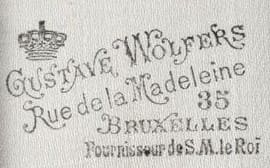 GUSTAVE WOLFERS
Rue de la Madeleine
35
BRUXELLES
Fournisseur de S.M. le Roi